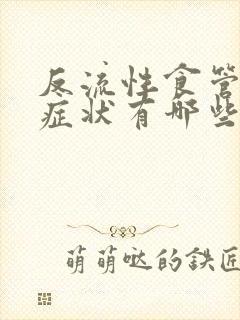 反流性食管
症状有哪些
萌萌哒的鉄匠